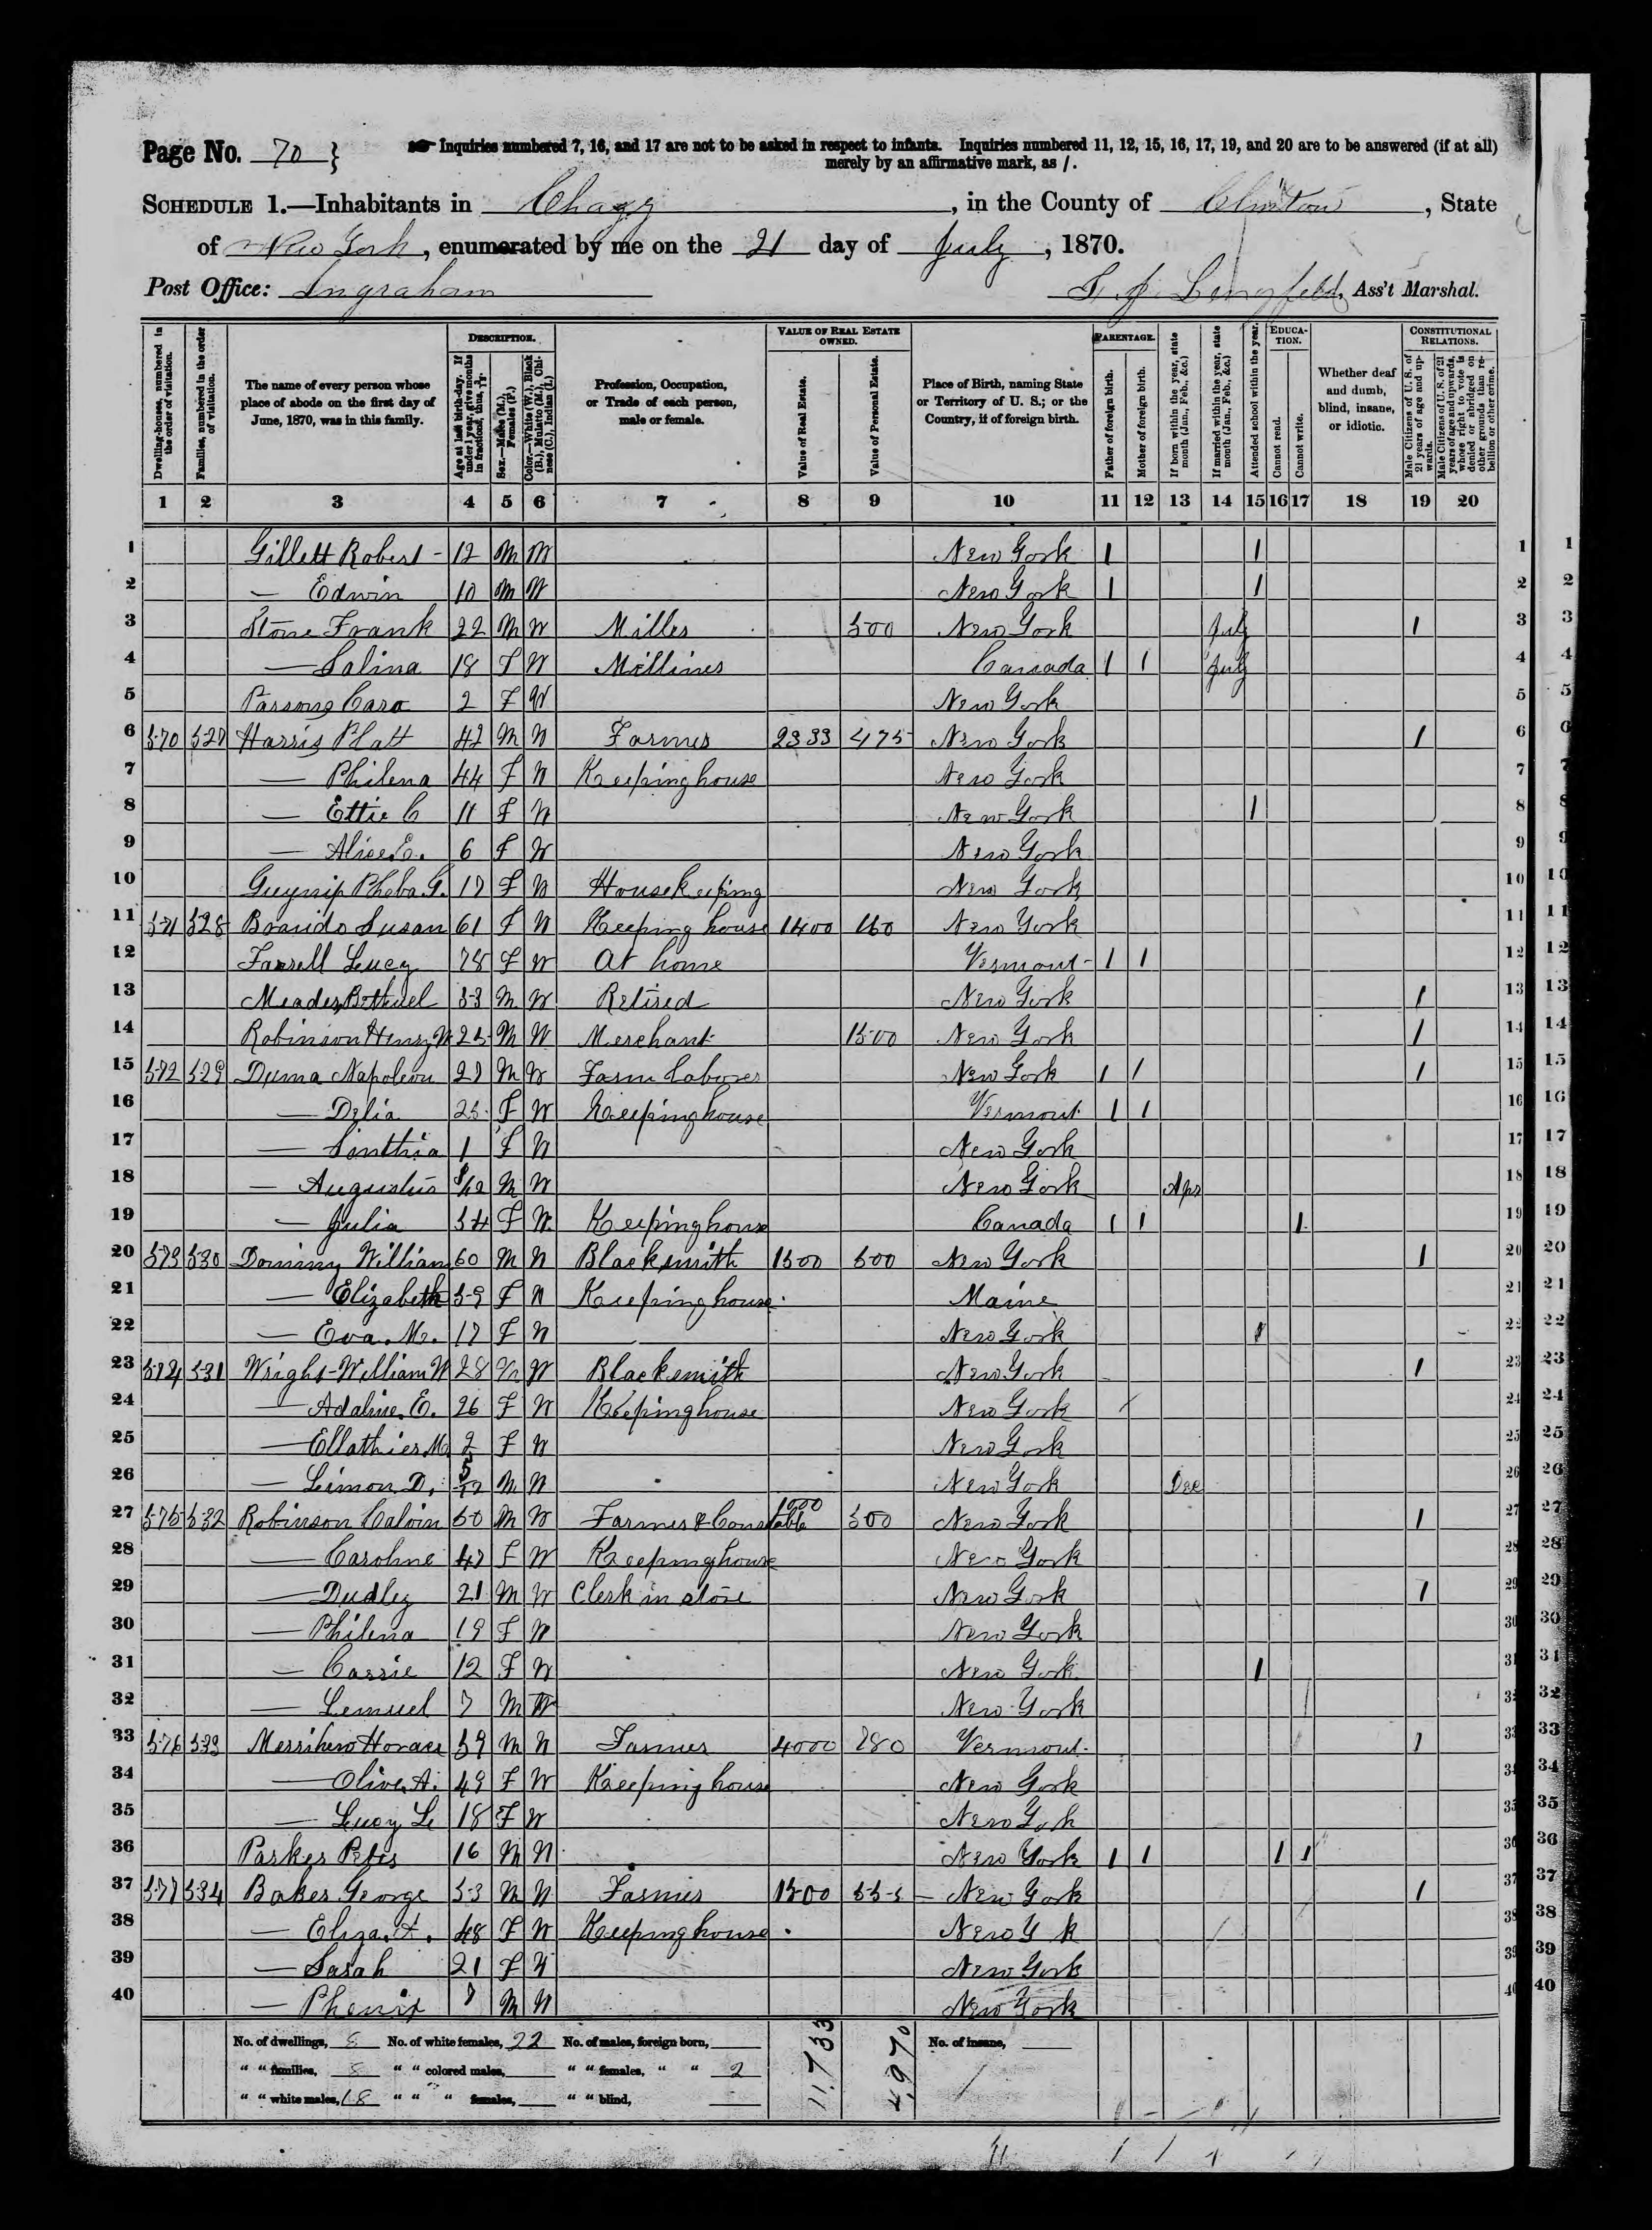 Page No. 70 }
Inquiries numbered 7, 16, and 17 are not to be asked in respect to infants. Inquiries numbered 11, 12, 15, 16, 17, 19, and 20 are to be answered (if at all)
merely by an affirmative mark, as /.
SCHEDULE 1.—Inhabitants in Chazy, in the County of Clinton, State
of New York, enumerated by me on the 21 day of July, 1870.
Post Office: Ingraham
Ass't Marshal.
DESCRIPTION. VALUE OF REAL ESTATE OWNED. PARENTAGE. EDUCATION. CONSTITUTIONAL RELATIONS.
Dwelling-houses, numbered in the order of visitation.
Families, numbered in the order of visitation.
The name of every person whose place of abode on the first day of June, 1870, was in this family.
Age at last birth-day. If under 1 year, give months in fractions, thus, 3/12.
Sex.—Males (M.), Females (F.)
Color.—White (W.), Black (B.), Mulatto (M.), Chinese (C.), Indian (I.)
Profession, Occupation, or Trade of each person, male or female.
Value of Real Estate.
Value of Personal Estate.
Place of Birth, naming State or Territory of U. S.; or the Country, if of foreign birth.
Father of foreign birth.
Mother of foreign birth.
If born within the year, state month (Jan., Feb., &c.)
If married within the year, state month (Jan., Feb., &c.)
Attended school within the year.
Cannot read.
Cannot write.
Whether deaf and dumb, blind, insane, or idiotic.
Male Citizens of U. S. of 21 years of age and upwards.
Male Citizens of U. S. of 21 years of age and upwards, whose right to vote is denied or abridged on other grounds than rebellion or other crime.
1 2 3 4 5 6 7 8 9 10 11 12 13 14 15 16 17 18 19 20
1 Gillett Robert - 12 M W New York 1 1 1 1
2 — Edwin 10 M W New York 1 1 2 2
3 Stone Frank 22 M W Miller 500 New York July 1 3 3
4 — Salina 18 F W Milliner Canada 1 1 July 4 4
5 Parsons Cara 2 F W New York 5 5
6 570 527 Harris Platt 42 M W Farmer 2333 475 New York 1 6 6
7 — Philena 44 F W Keeping house New York 7 7
8 — Ettie C 11 F W New York 1 8 8
9 — Alice E. 6 F W New York 9 9
10 Pheba G. 17 F W Housekeeping New York 10 10
11 571 528 Susan 61 F W Keeping house 1400 160 New York 11 11
12 Farrell Lucy 78 F W At home Vermont 1 1 12 12
13 Meader Bethuel 53 M W Retired New York 1 13 13
14 Robinson Henry W 25 M W Merchant 1500 New York 1 14 14
15 572 529 Duma Napoleon 27 M W Farm Laborer New York 1 1 1 15 15
16 — Delia 25 F W Keeping house Vermont 1 1 16 16
17 — Sinthia 1 F W New York 17 17
18 — Augustus /12 M W New York Apr 18 18
19 — Julia 54 F W Keeping house Canada 1 1 1 19 19
20 573 530 Dominy William 60 M W Blacksmith 1500 500 New York 1 20 20
21 — Elizabeth 59 F W Keeping house Maine 21 21
22 — Eva M. 17 F W New York 1 22 22
23 574 531 Wright William W 28 M W Blacksmith New York 1 23 23
24 — Adaline E. 26 F W Keeping house New York 24 24
25 — M. 2 F W New York 25 25
26 — Simon D. 5/12 M W New York Dec 26 26
27 575 532 Robinson Calvin 50 M W Farmer & Constable 1000 500 New York 1 27 27
28 — Caroline 47 F W Keeping house New York 28 28
29 — Dudley 21 M W Clerk in store New York 1 29 29
30 — Philena 19 F W New York 30 30
31 — Cassie 12 F W New York 1 31 31
32 — Lemuel 7 M W New York 32 32
33 576 533 Merrihew Horace 59 M W Farmer 4000 780 Vermont 1 33 33
34 — Olive A. 49 F W Keeping house New York 34 34
35 — Lucy L 18 F W New York 35 35
36 Parker Peter 16 M W New York 1 1 1 1 36 36
37 577 534 Baker George 53 M W Farmer 1500 555 New York 1 37 37
38 — Eliza A. 48 F W Keeping house New Y k 38 38
39 — Sarah 21 F W New York 39 39
40 — Phenix 7 M W New York 40 40
No. of dwellings, 8 No. of white females, 22 No. of males, foreign born, 11,733 4,970 No. of insane,
" " families, 8 " " colored males, " " females, " " 2
" " white males, 18 " " " females, " " blind,